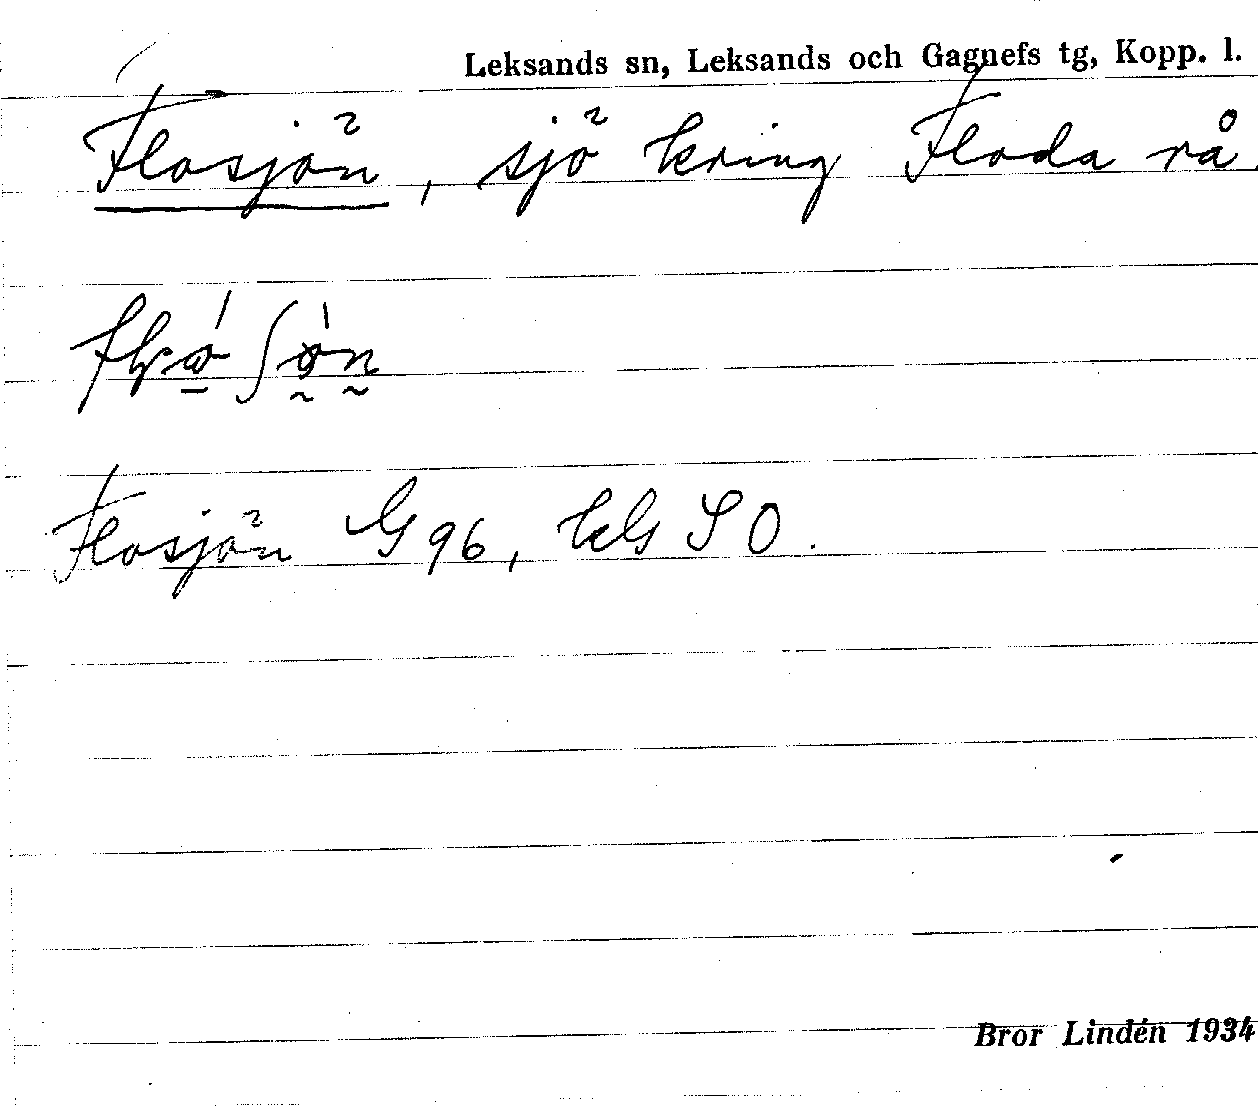 Leksands sn, Leksands och Gagnefs tg, Kopp. l.
Flosjön, sjö kring Floda rå.
Flosjön G 96, kbl SO.
Bror Lindén 1934